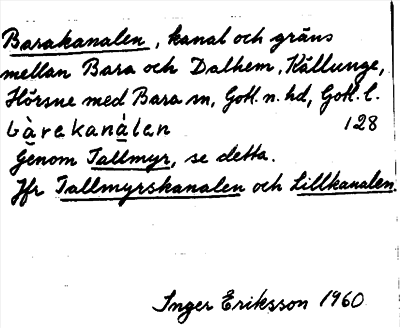 Barakanalen, kanal och gräns
mellan Bara och Dalhem, Källunge,
Hörsne med Bara sn, Gotl. n. hd, Gotl. l.
bàrekanálen 128
Genom Tallmyr, se detta.
Jfr Tallmyrskanalen och Lillkanalen.
Inger Eriksson 1960